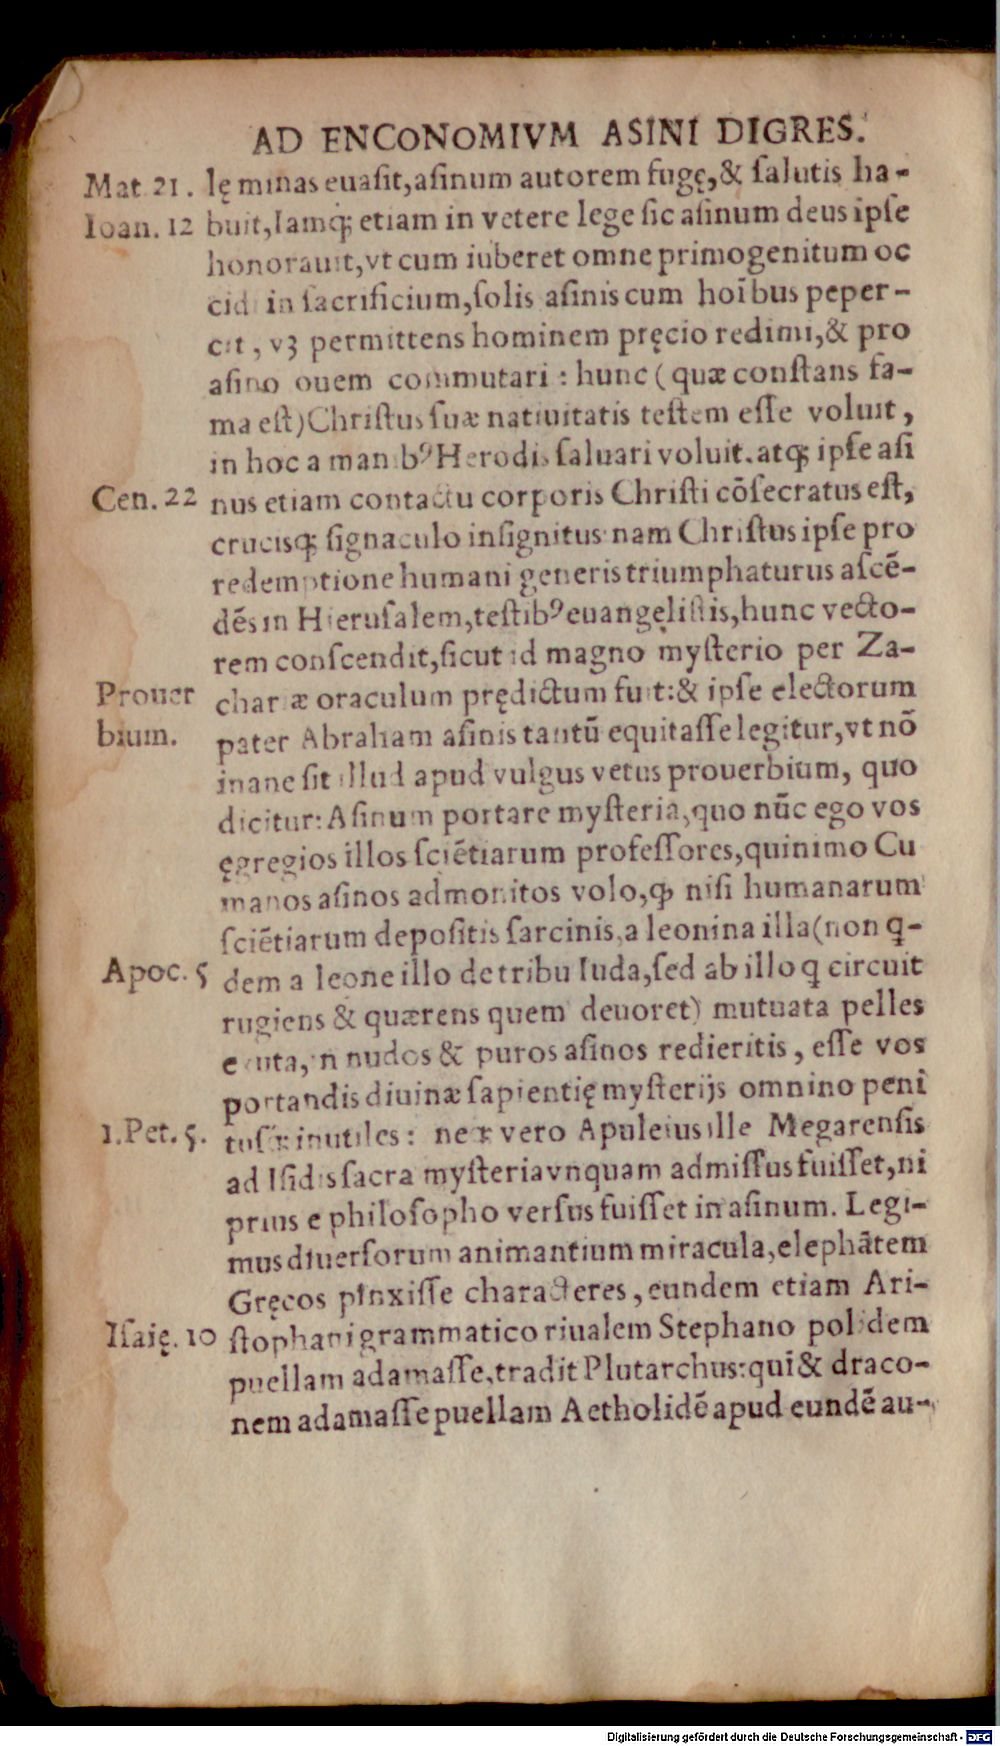 AD ENCONOMIVM ASINI DIGRES.
Mat. 21. lę minas euasit, asinum autorem fugę, & salutis ha-
Ioan. 12 buit, Iamq; etiam in vetere lege sic asinum deus ipse
honorauit, vt cum iuberet omne primogenitum oc
cidi in sacrificium, solis asinis cum hoībus peper-
cit, vȝ permittens hominem pręcio redimi, & pro
asino ouem commutari: hunc (quæ constans fa-
ma est) Christus suæ natiuitatis testem esse voluit,
in hoc a manibꝰ Herodis saluari voluit. atq; ipse asi
Cen. 22 nus etiam contactu corporis Christi cōsecratus est,
crucisq; signaculo insignitus: nam Christus ipse pro
redemptione humani generis triumphaturus ascē-
dēs in Hierusalem, testibꝰ euangęlistis, hunc vecto-
rem conscendit, sicut id magno mysterio per Za-
Prouer chariæ oraculum prędictum fuit: & ipse electorum
bium. pater Abraham asinis tantū equitasse legitur, vt nō
inane sit illud apud vulgus vetus prouerbium, quo
dicitur: Asinum portare mysteria, quo nūc ego vos
ęgregios illos sciētiarum professores, quinimo Cu
manos asinos admonitos volo, ꝙ nisi humanarum
sciētiarum depositis sarcinis, a leonina illa (non q-
Apoc. 5 dem a leone illo de tribu Iuda, sed ab illo q circuit
rugiens & quærens quem deuoret) mutuata pelles
exuta, in nudos & puros asinos redieritis, esse vos
portandis diuinæ sapientię mysterijs omnino peni
1. Pet. 5. inutiles: vero Apuleius ille Megarensis
ad Isidis sacra mysteria vnquam admissus fuisset, ni
prius e philosopho versus fuisset in asinum. Legi-
mus diuersorum animantium miracula, elephātem
Gręcos pinxisse characteres, eundem etiam Ari-
Isaię. 10 stophani grammatico riualem Stephano polidem
puellam adamasse, tradit Plutarchus: quī & draco-
nem adamasse puellam Aetholidē apud eundē au-
Digitalisierung gefördert durch die Deutsche Forschungsgemeinschaft - DFG